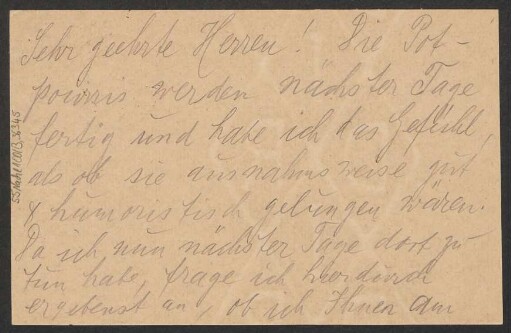 Sehr geehrte Herren! Die Pot-
pourris werden nächster Tage
fertig und habe ich das Gefühl,
als ob sie ausnahmsweise gut
& humoristisch gelungen wären.
Da ich nun nächster Tage dort zu
tun habe, frage ich hierdurch
ergebenst an, ob ich Ihnen am